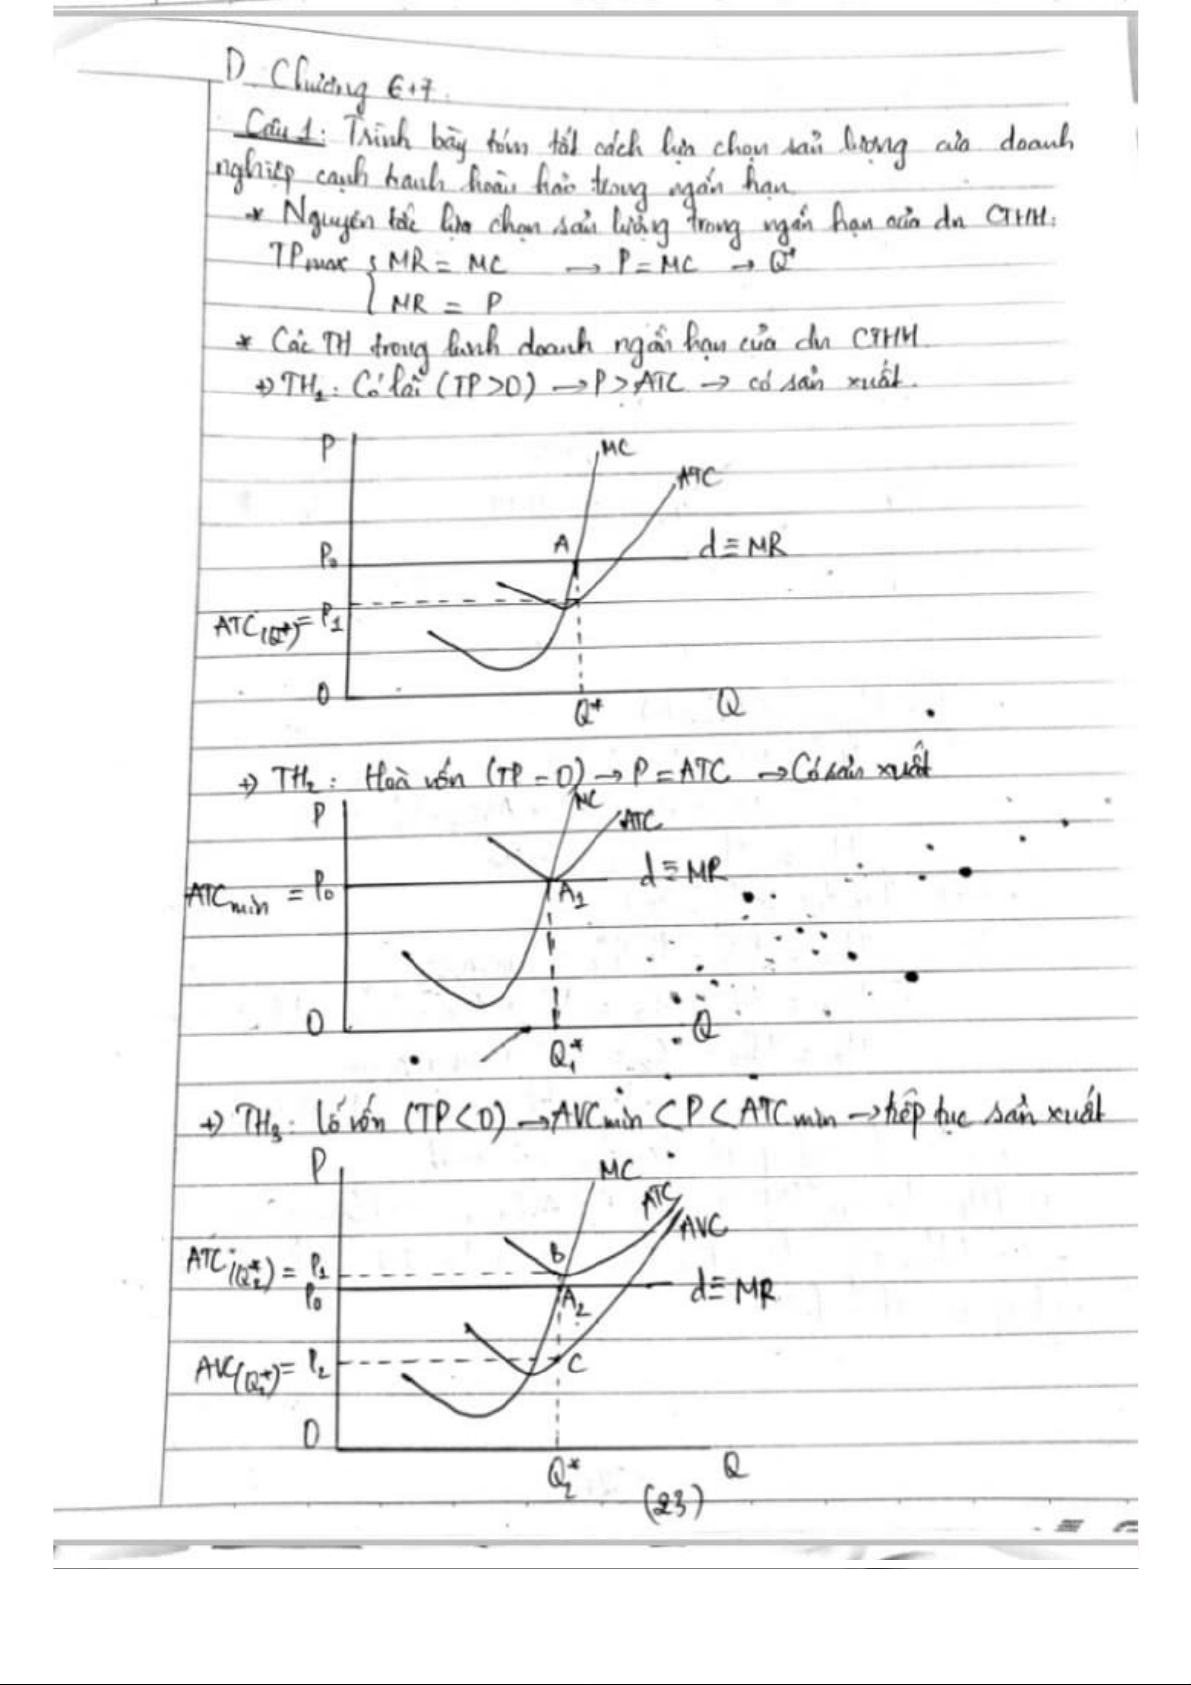 D. Chương 6+7.
Câu 1: Trình bày tóm tắt cách lựa chọn sản lượng của doanh
nghiệp cạnh tranh hoàn hảo trong ngắn hạn
* Nguyên tắc lựa chọn sản lượng trong ngắn hạn của dn CTHH:
TPmax { MR = MC → P = MC → Q*
MR = P
* Các TH trong kinh doanh ngắn hạn của dn CTHH
+) TH1: Có lãi (TP>0) → P > ATC → có sản xuất.
P
MC
ATC
P0
A
d ≡ MR
ATC(Q*) = P1
0
Q*
Q
+) TH2: Hoà vốn (TP = 0) → P = ATC → Có sản xuất
P
MC
ATC
ATCmin = P0
A1
d ≡ MR
0
Q1*
Q
+) TH3: Lỗ vốn (TP<0) → AVCmin < P < ATCmin → tiếp tục sản xuất
P
MC
ATC
AVC
ATC(Q2*) = P1
B
P0
A2
d ≡ MR
AVC(Q2*) = P2
C
0
Q2*
Q
(23)